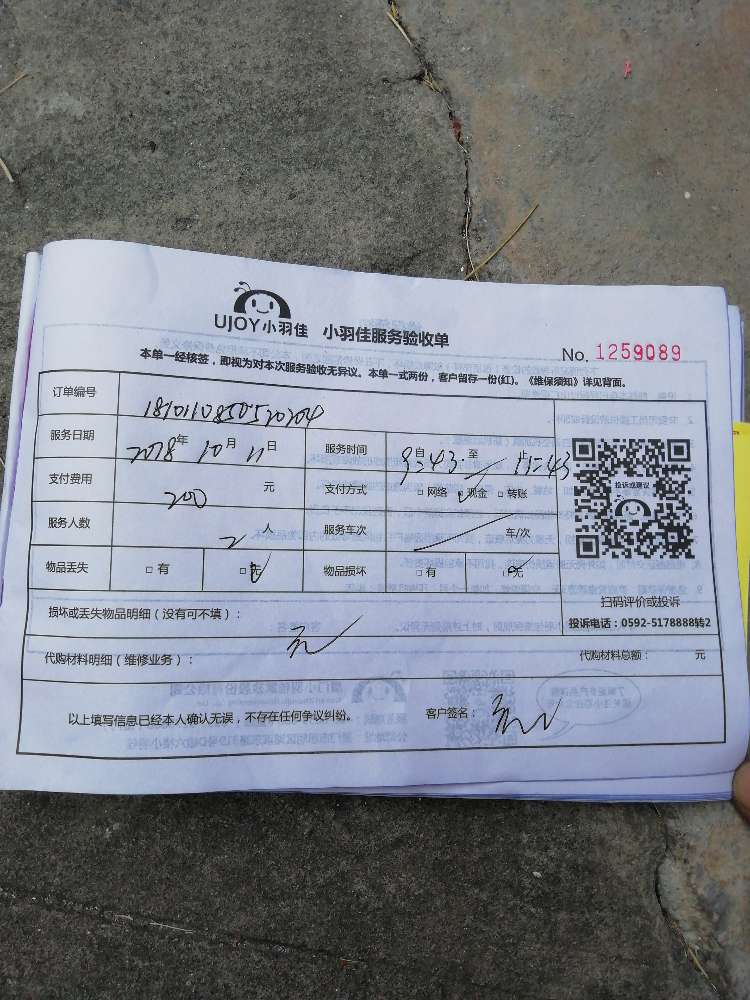 UJOY小羽佳 小羽佳服务验收单
No. 1259089
本单一经核签，即视为对本次服务验收无异议。本单一式两份，客户留存一份(红)。《维保须知》详见背面。
订单编号
服务日期 2018年 10月 11日 服务时间 9:43 至 11:43
支付费用 200 元 支付方式 □网络 □现金 □转账
服务人数 2 人 服务车次 车/次
物品丢失 □有 □无 物品损坏 □有 □无
投诉或建议
扫码评价或投诉
投诉电话：0592-5178888转2
损坏或丢失物品明细（没有可不填）： 无
代购材料明细（维修业务）： 代购材料总额： 元
以上填写信息已经本人确认无误，不存在任何争议纠纷。 客户签名：